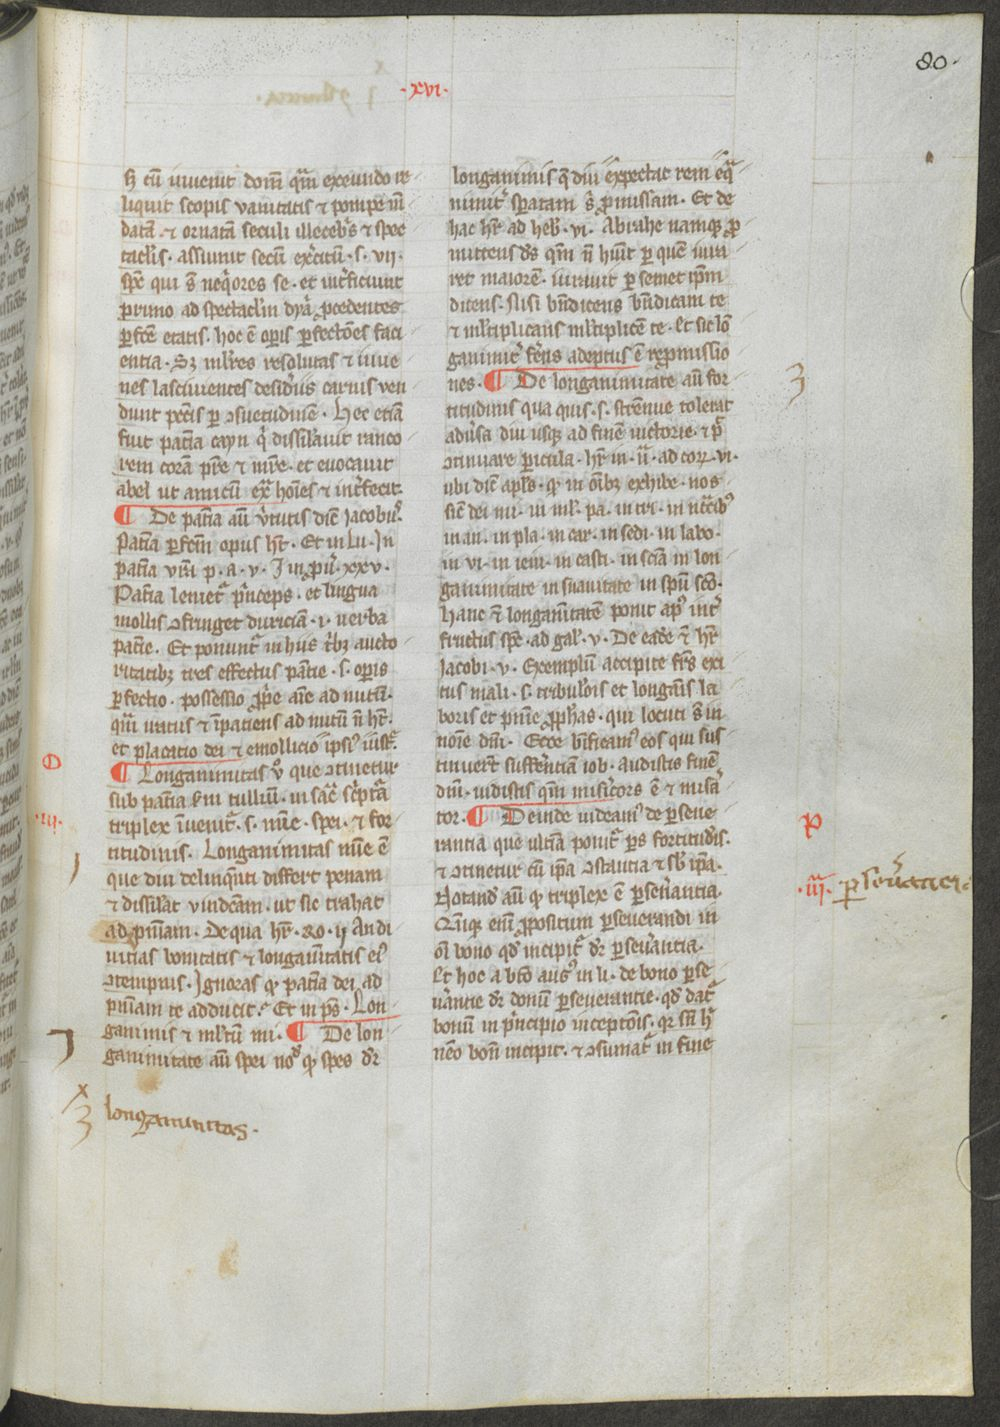 80.
·xvi·
h cū iuuenit domū quā exeundo re
liquit scopis vanitatis et pompe mū
datā et ornatā seculi illecebris et spec
taclis. assumit secū exercitū .s. vii.
primo ad spectaclm dyā procedentes
perfcē etatis. hoc ē opis perfectōes faci
entia. Sz mlres resolutas et iuue
nes lasciuientes desideriis carnis ven
dunt pctis per ɔsuetudinē. Hec etiā
fuit patia cayn q dissilauit ranco
rem corā pre et mre. et euocauit
abel ut amicū extra hoies et interfecit.
¶ De patia aū vtutis diē Jacobus.
Patia perfcm opus ht. Et in lu. In
patia vra p. a. v. In pū. xxv.
Patia lenietur princeps. et lingua
mollis ɔfringet duriciā .i. verba
patie. Et ponuntur in hiis tbz aucto
ritatibz tres effectus patie .s. opis
perfectio. possessio proprie aīe ad nutū.
quā iratus et īpatiens ad nutū n ht.
et placatio dei et emollicio ipsius iusti.
¶ Longanimitas vo que ɔtinetur
sub patia sm tulliū. in sac scptā
triplex īuenitur .s. mīe. spei. et for
titudinis. Longanimitas mīe ē
que diu delinqnti differt penam
et dissilat vindcam. ut sic trahat
ad pniam. De qua hr. Ro. ii An di
uitias bonitatis et longaitatis eius
ɔtempnis. Ignoras qp patia dei ad
pniam te adducit. Et in ps. Lon
ganimis et mltū mi. ¶ De lon
ganimitate aū spei no qp spes dr
longanimis q diu expectat rem eq
nimiter speratam s promissam. Et de
hac hr ad heb. vi. Abrahe namque pro
mittens ds qm n huit per quē iura
ret maiorē. iurauit per semet ipm
dicens. Nisi bndicens bndicam te
et mltiplicans mltiplicē te. Et sic lo
ganimiter feres adeptus ē repromissio
nes. ¶ De longanimitate aū for
titudinis qua quis .s. strenue tolerat
adusa diu usque ad finē victorie. et p
ɔtinuare pericula. hr in .ii. ad corr. vi.
ubi diē apls. qp in oībz exhibe. nos
sic dei mi. in ml. pa. in tri. in nccibus
in an. in pla. in car. in sedi. in labo.
in vi. in ieiu. in casti. in scia in lon
ganimitate in suauitate in spu sco.
hanc et longanitatē ponit aps inter
fructus spc. ad gal. v. De eade et hr
Jacobi. v. Exemplū accipite frs exi
tus mali .s. tribulois et longais la
boris et pnie prophas. qui locuti st in
noīe dni. Ecce btificamus eos qui sus
tinuert sufferentiā iob. audistis finē
dni. vidistis qm misicors ē et misa
tor. ¶ Deinde videamus de perseue
rantia que ultīa ponitur pars fortitudis.
et ɔtinetur cū ipa ɔstantia et sb ipa.
Notand aū qp triplex ē perseuantia.
Quique enī propositum perseuerandi in
oī bono qd incipitur dr perseuantia.
Et hoc a bto aug in li. de bono perse
uantie dr donū perseuerantie. qd datur
bonū in principio inceptois. qr sn h
nēo bonū incipit. et ɔsumatur in fine
·iii·
·iii·
perseuerancia
longanimitas.